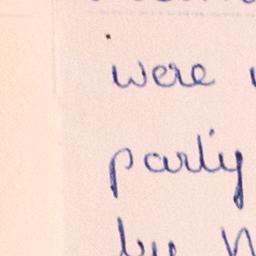 were
party
by